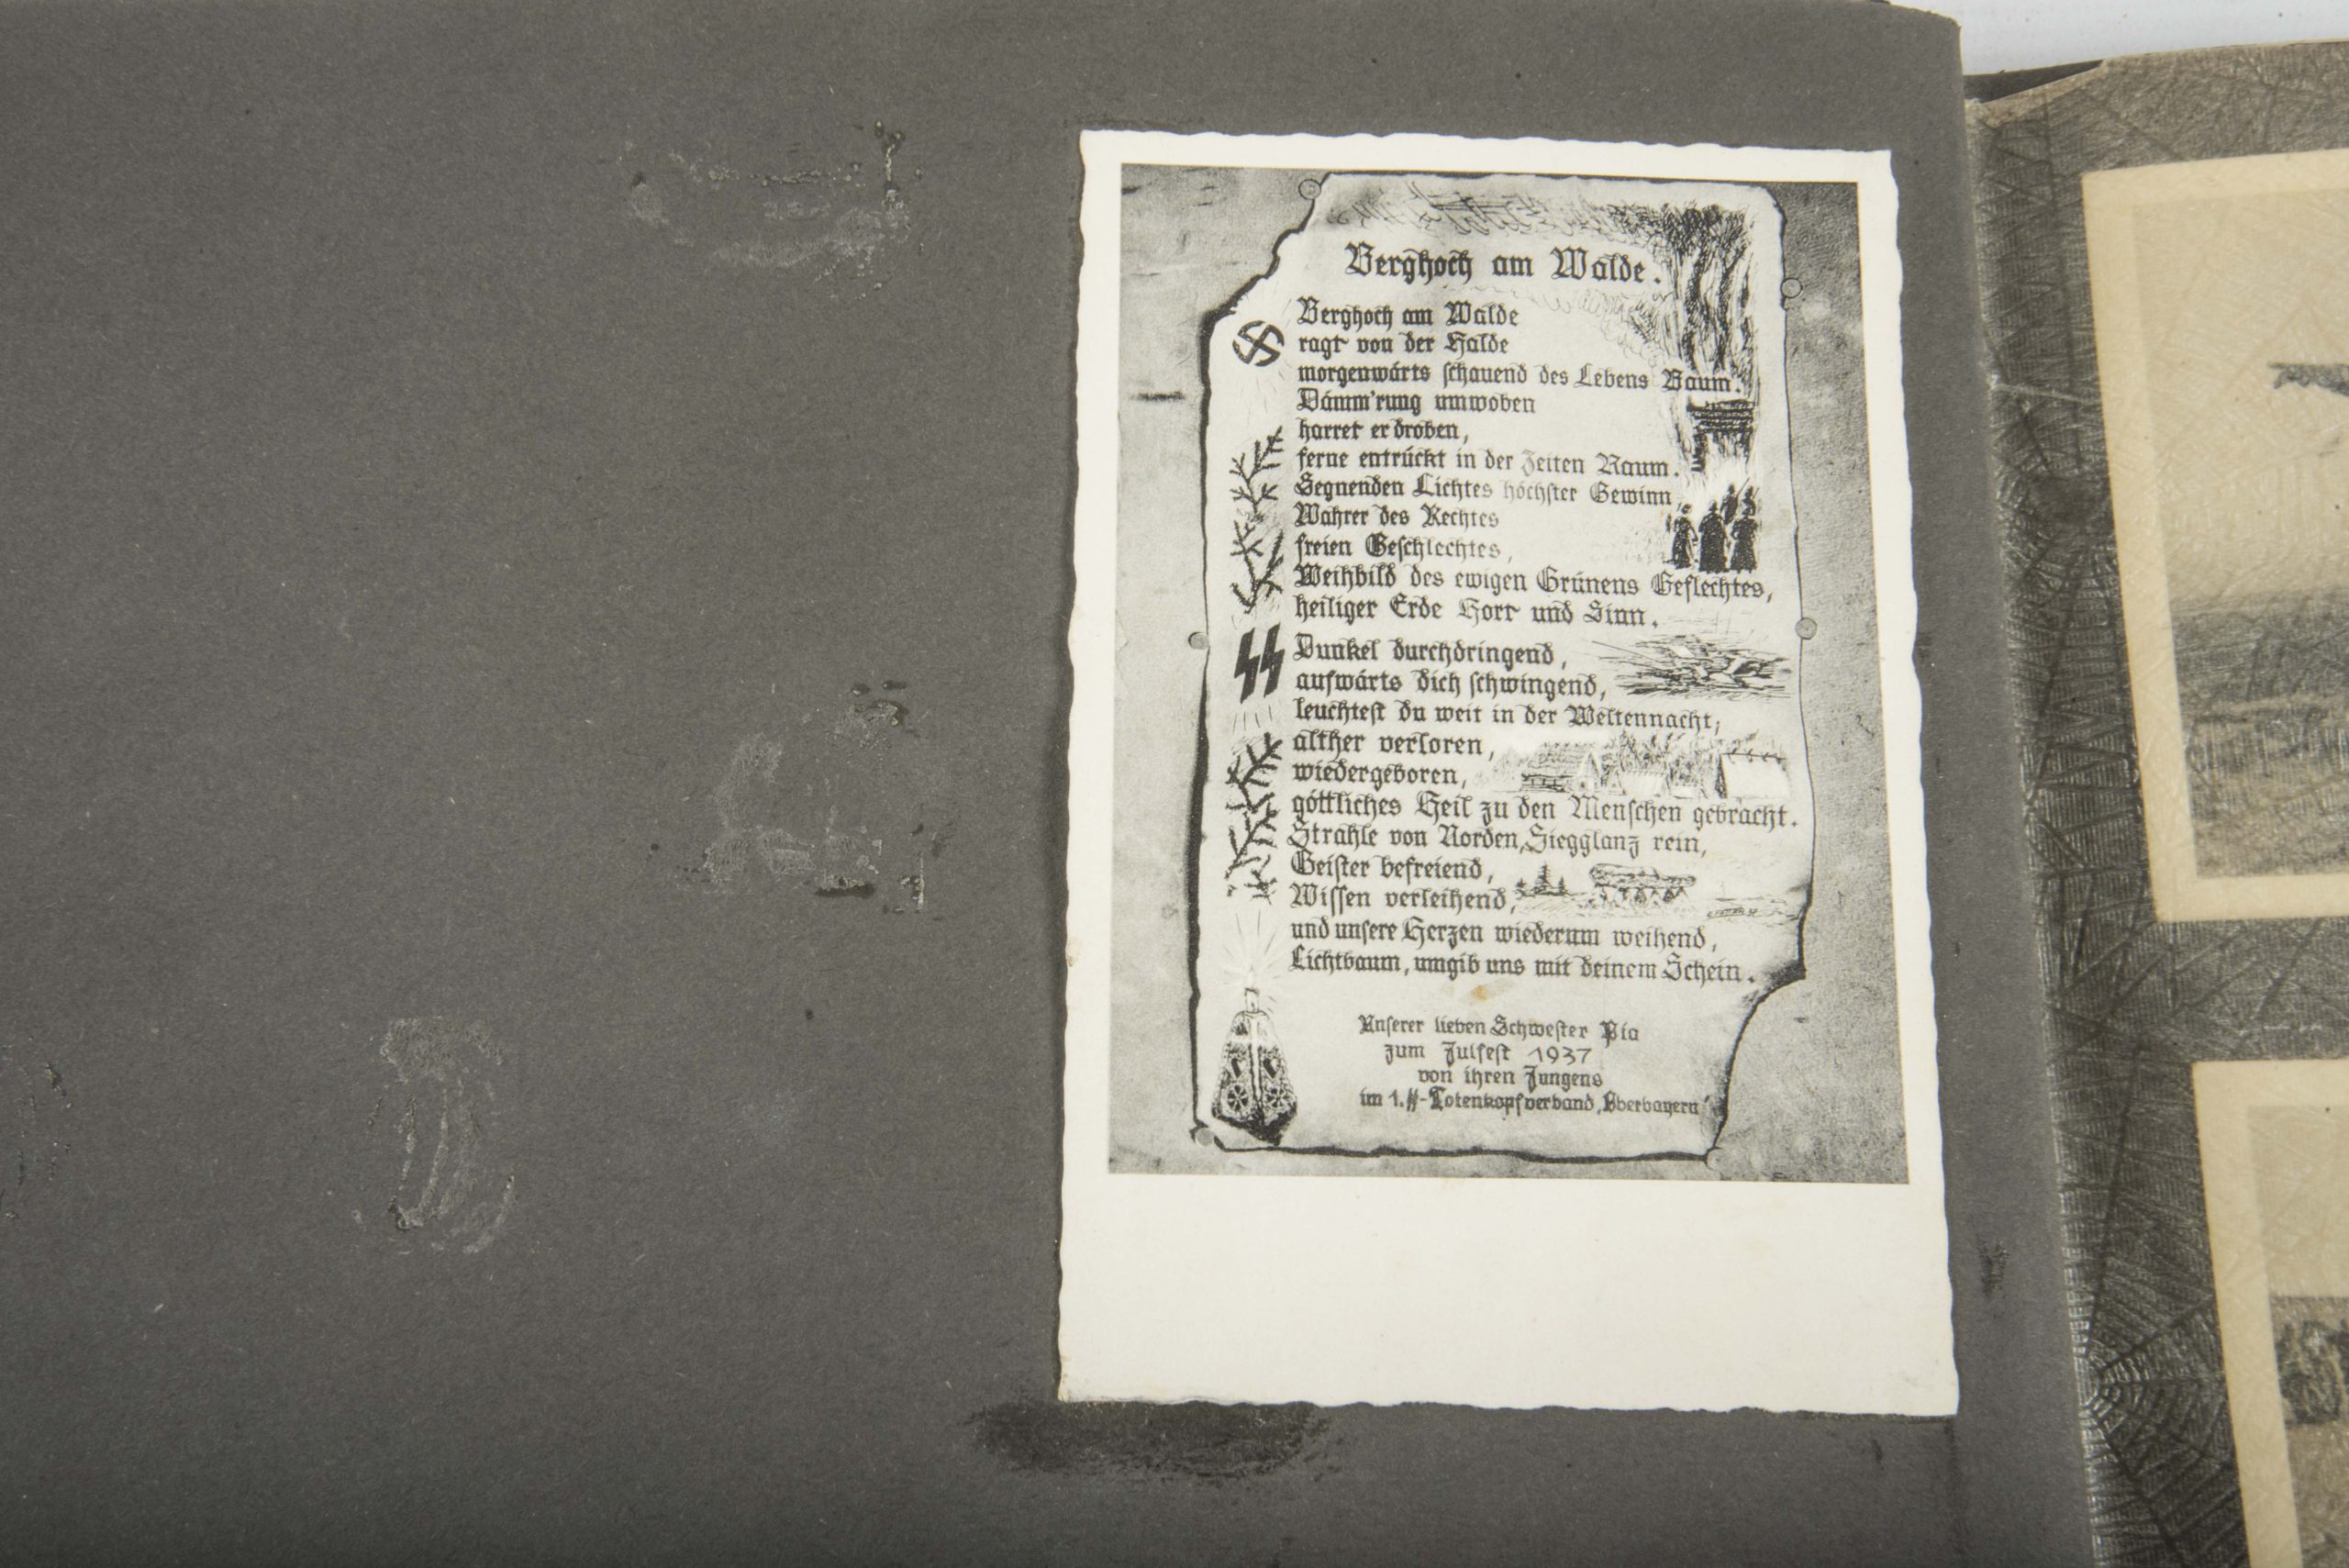 Berghoch am Walde.
Berghoch am Walde
ragt von der Halde
morgenwärts schauend des Lebens Baum.
Dämm'rung umwoben
harret er droben,
ferne entrückt in der Zeiten Raum.
Segnenden Lichtes höchster Gewinn,
Wahrer des Rechtes
freien Geschlechtes,
Weihbild des ewigen Grünens Geflechtes,
heiliger Erde Hort und Sinn.
Dunkel durchdringend,
aufwärts dich schwingend,
leuchtest du weit in der Weltennacht;
alther verloren,
wiedergeboren,
göttliches Heil zu den Menschen gebracht.
Strahle von Norden, Siegglanz rein,
Geister befreiend,
Wissen verleihend,
und unsere Herzen wiederum weihend,
Lichtbaum, umgib uns mit deinem Schein.
Unserer lieben Schwester Pia
zum Julfest 1937
von ihren Jungens
im 1. SS-Totenkopfverband „Oberbayern“